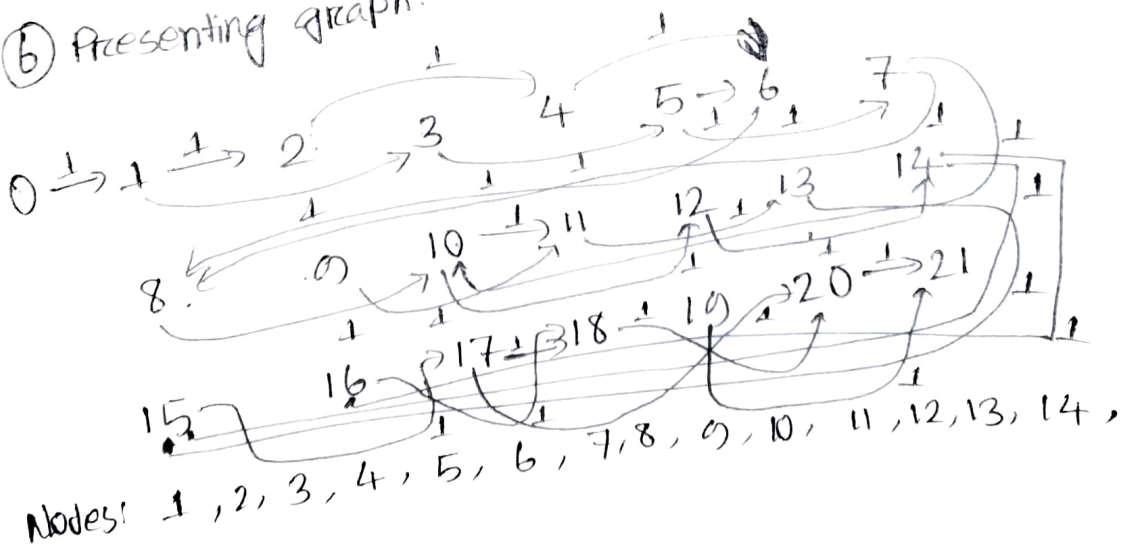 6 Presenting graph.
1 1
0 1 1 1 2 3 4 5 1 6 1 7 1 1
1 1 1
8 9 10 1 11 12 1 13 14 1
1 1 1 1
15 16 17 1 18 1 19 1 20 1 21 1
1 1 1 1
Nodes: 1, 2, 3, 4, 5, 6, 7, 8, 9, 10, 11, 12, 13, 14,